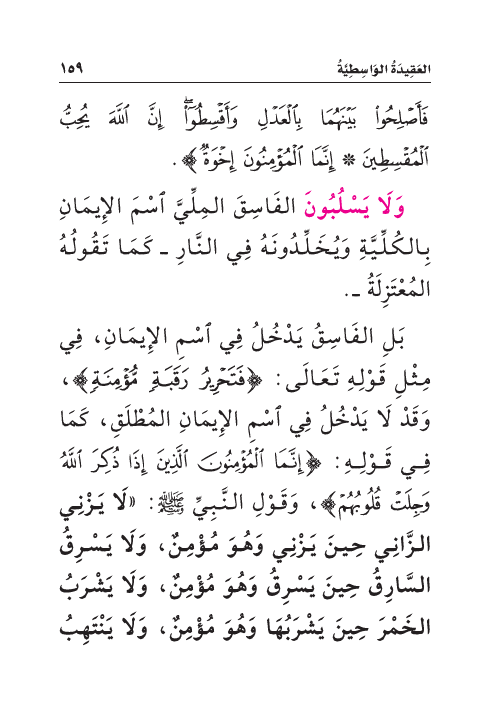 العَقِيدَةُ الوَاسِطِيَّةُ ١٥٩
فَأَصْلِحُوا۟ بَيْنَهُمَا بِٱلْعَدْلِ وَأَقْسِطُوٓا۟ۖ إِنَّ ٱللَّهَ يُحِبُّ
ٱلْمُقْسِطِينَ * إِنَّمَا ٱلْمُؤْمِنُونَ إِخْوَةٌ﴾.
وَلَا يَسْلُبُونَ الفَاسِقَ المِلِّيَّ ٱسْمَ الإِيمَانِ
بِالكُلِّيَّةِ وَيُخَلِّدُونَهُ فِي النَّارِ ـ كَمَا تَقُولُهُ
المُعْتَزِلَةُ ـ.
بَلِ الفَاسِقُ يَدْخُلُ فِي ٱسْمِ الإِيمَانِ، فِي
مِثْلِ قَوْلِهِ تَعَالَى: ﴿فَتَحْرِيرُ رَقَبَةٍ مُّؤْمِنَةٍ﴾،
وَقَدْ لَا يَدْخُلُ فِي ٱسْمِ الإِيمَانِ المُطْلَقِ، كَمَا
فِي قَوْلِهِ: ﴿إِنَّمَا ٱلْمُؤْمِنُونَ ٱلَّذِينَ إِذَا ذُكِرَ ٱللَّهُ
وَجِلَتْ قُلُوبُهُمْ﴾، وَقَوْلِ النَّبِيِّ ﷺ: «لَا يَزْنِي
الزَّانِي حِينَ يَزْنِي وَهُوَ مُؤْمِنٌ، وَلَا يَسْرِقُ
السَّارِقُ حِينَ يَسْرِقُ وَهُوَ مُؤْمِنٌ، وَلَا يَشْرَبُ
الخَمْرَ حِينَ يَشْرَبُهَا وَهُوَ مُؤْمِنٌ، وَلَا يَنْتَهِبُ